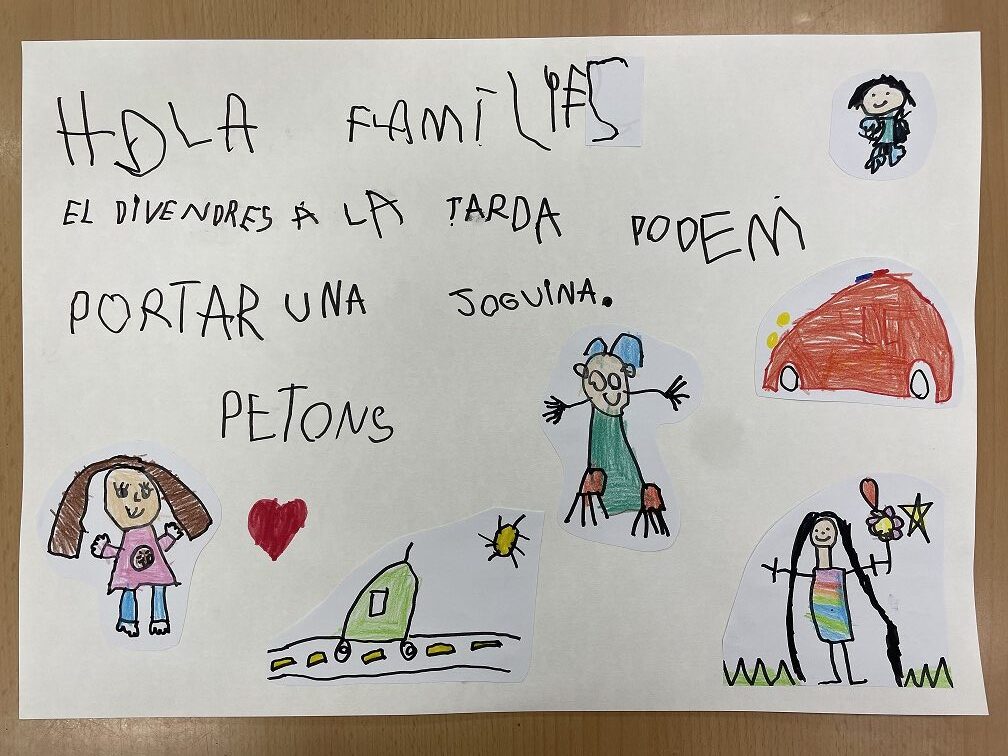 HOLA FAMÍLIES
EL DIVENDRES A LA TARDA PODEM
PORTAR UNA JOGUINA.
PETONS